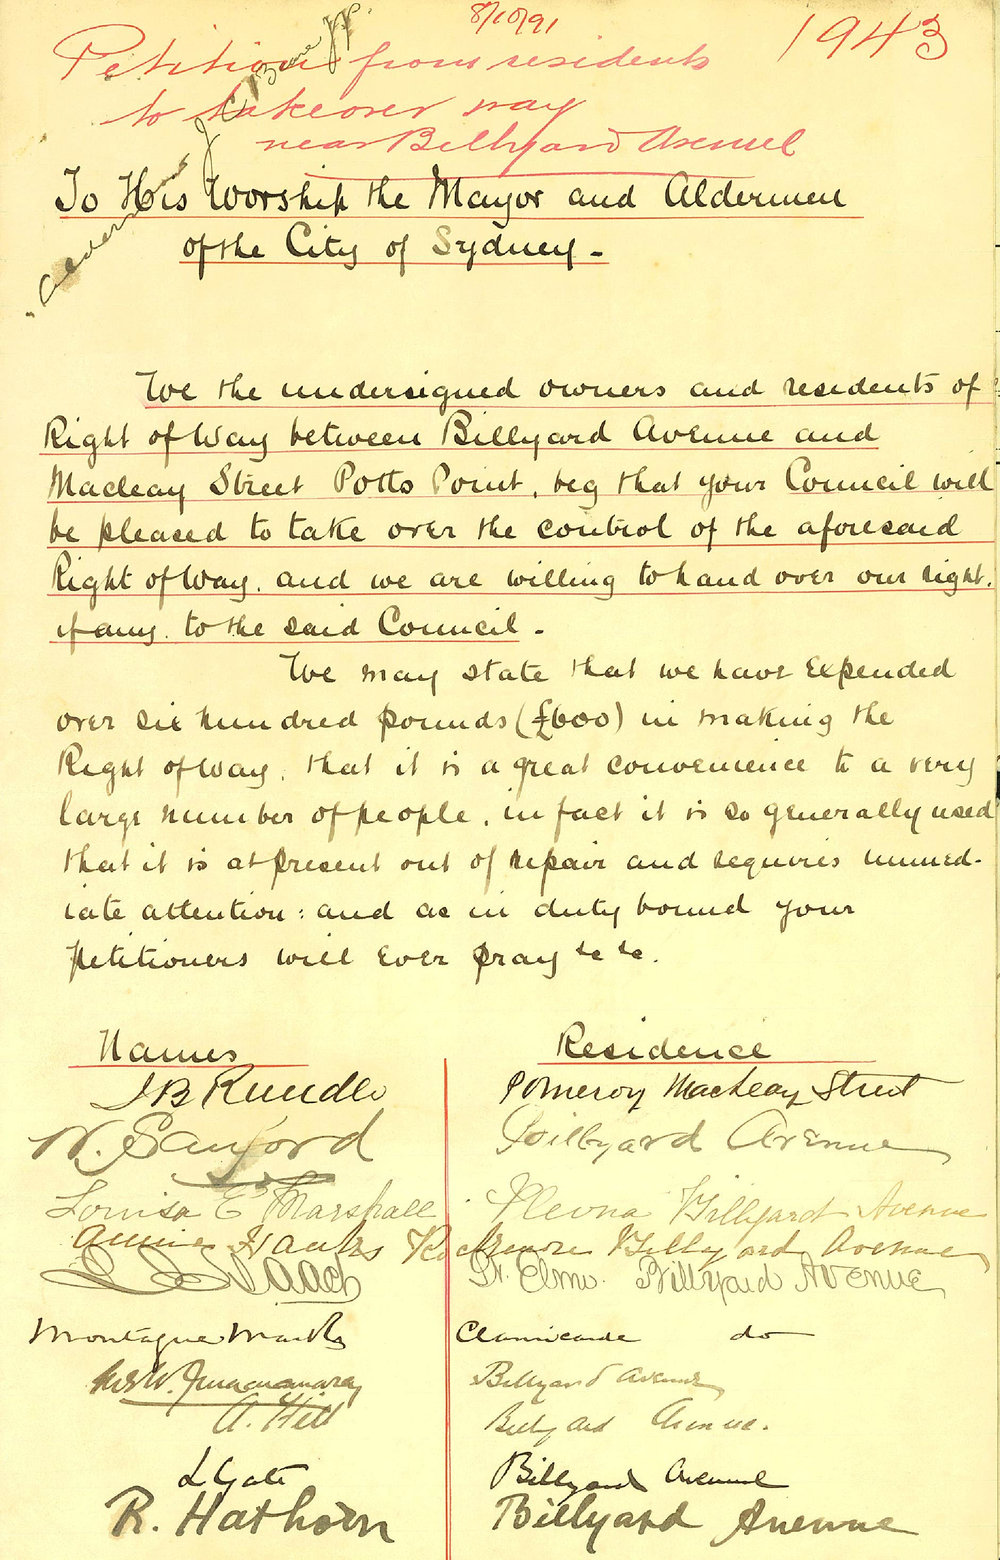 8/10/91
1943
Petition from residents
to takeover way
near Billyard Avenue
To His Worship the Mayor and Aldermen
of the City of Sydney. -
We the undersigned owners and residents of
Right of Way between Billyard Avenue and
Macleay Street Potts Point, beg that your Council will
be pleased to take over the control of the aforesaid
Right of Way, and we are willing to hand over our right,
if any, to the said Council. -
We may state that we have expended
over six hundred pounds (£600) in making the
Right of Way, that it is a great convenience to a very
large number of people, in fact it is so generally used
that it is at present out of repair and requires immed-
iate attention: and as in duty bound your
petitioners will ever pray &c &c.
Names Residence
J B Rundle Pomeroy Macleay Street
W. Sanford Billyard Avenue
Louisa E Marshall Plevna Billyard Avenue
Annie Hanks Billyard Avenue
Isaacs St. Elmo. Billyard Avenue
Montague Marks Clanricarde do
Mrs W. Billyard Avenue
A. Hill Billyard Avenue.
L Gate Billyard Avenue
R. Hathorn Billyard Avenue